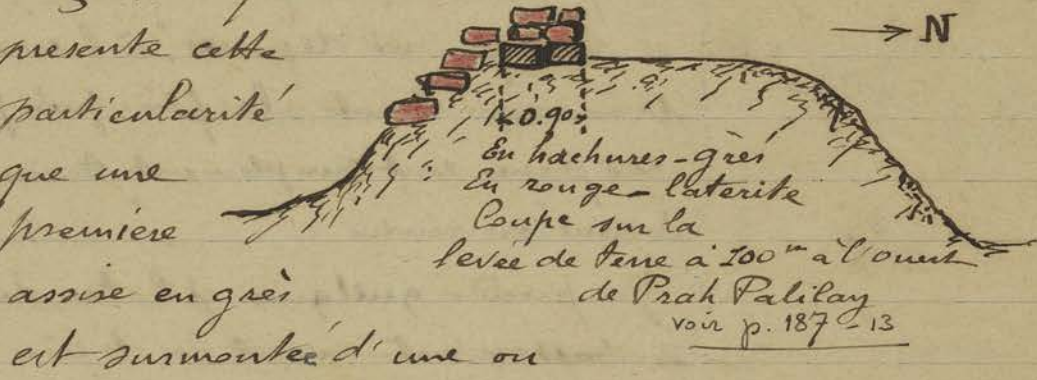 présente cette
particularité
que une
première
assise en grès
est surmontée d'une ou
→ N
0.90
En hachures - grès
En rouge - laterite
Coupe sur la
levée de terre à 100ᵐ à l'ouest
de Prah Palilay
voir p. 187 - 13